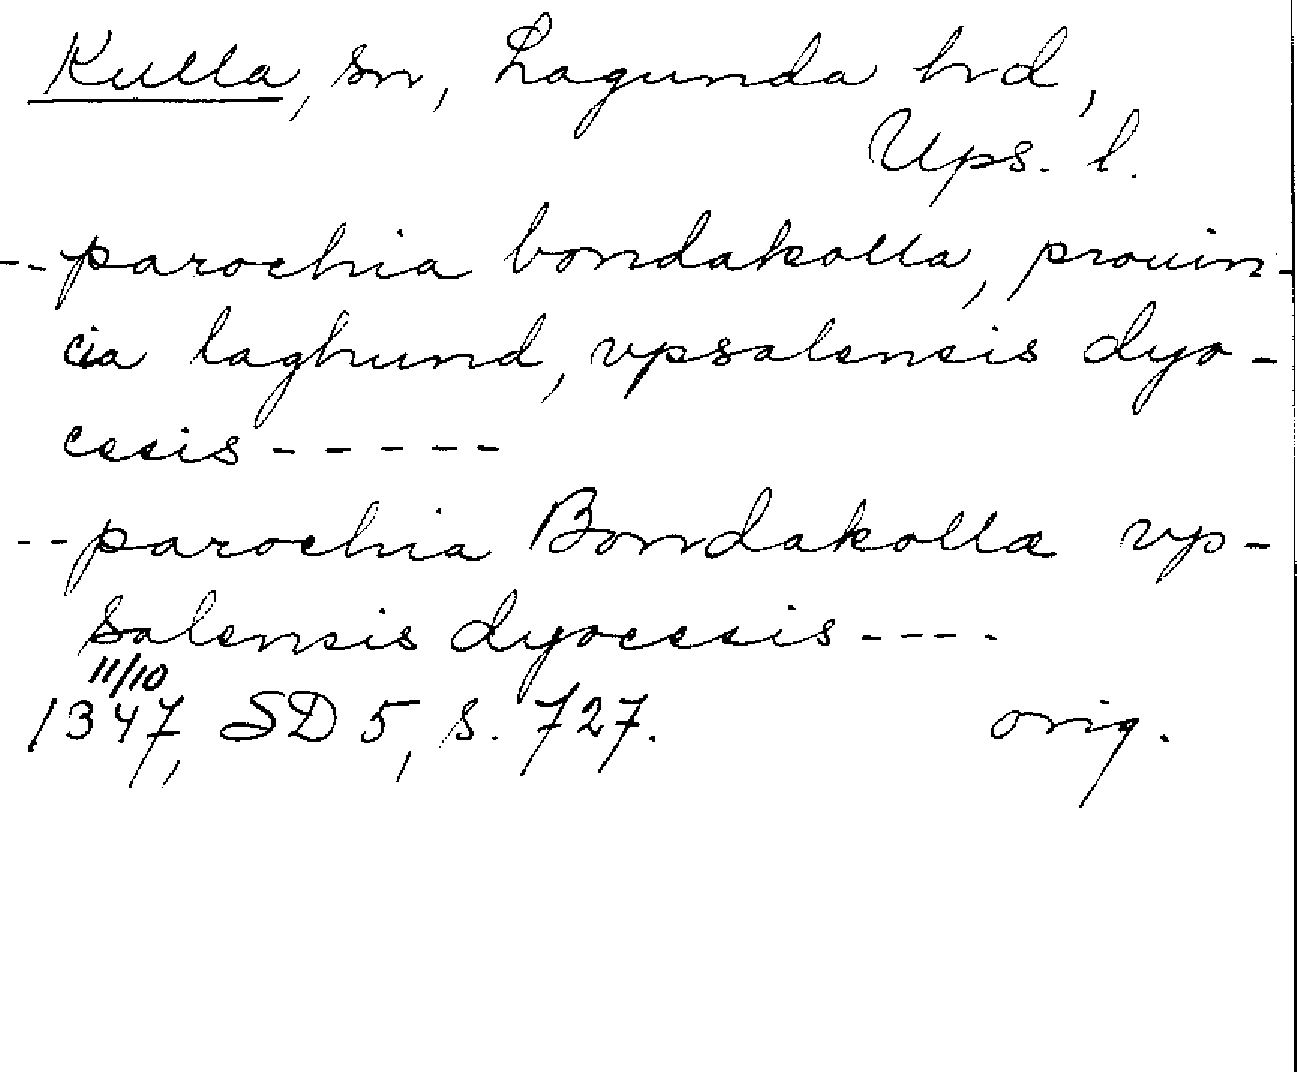 Kulla, sn, Lagunda hrd,
Ups. l.
-- parochia bondakolla, prouin-
cia laghund, vpsalensis dyo-
cesis -----
-- parochia Bondakolla vp-
salensis dyocesis ----
11/10
1347, SD 5, s. 727. orig.